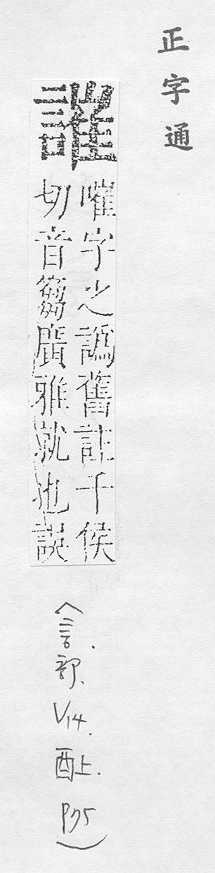 正字通
嗺字之譌舊註千侯
切音芻廣雅就也誤
(言部. V14. 酉上. P75)